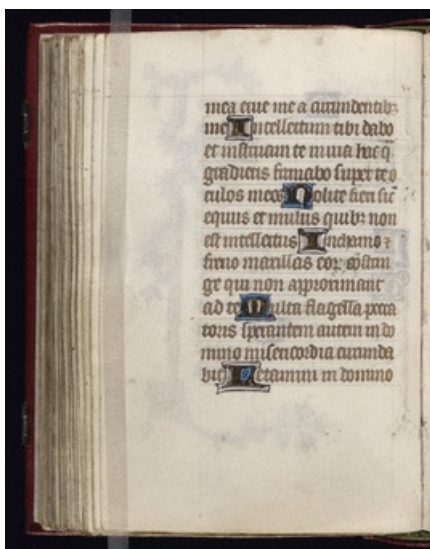 mea erue me a circundentibꝫ
me Intellectum tibi dabo
et instruam te in uia hac q̄
gradieris firmabo super te o
culos meos Nolite fieri sic̄
equus et mulus quibꝫ non
est intellectus In chamo ⁊
freno maxillas eoꝝ c̄ōstrin
ge qui non approximant
ad te Multa flagella pecca
toris sperantem autem in do
mino misericordia circumda
bit Letamini in domino